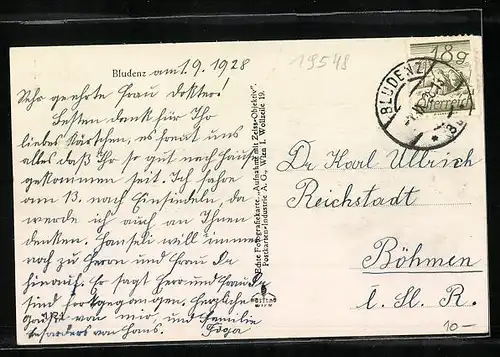 Bludenz am 1.9.1928
19548
Sehr geehrte Frau Doktor!
Besten Dank für Ihr
liebes Kärtchen, es freut uns
alles daß Ihr so gut nach Hause
gekommen seit. Ich fahre
am 13. nach Einsiedeln, da
werde ich auch an Ihnen
denken. Hanseli will immer
noch zu Herrn und Frau Dr
hinauf. Er sagt Herr und Frau Dr
sind fortgegangen, herzliche
von mir, und Familie
besonders von Hans.
"Echte Fotografiekarte. „Aufnahme mit Zeiss-Objektiv“
Postkarten-Industrie A. G., Wien I. Wollzeile 19.
18g
Österreich
BLUDENZ
Dr Karl Ullrich
Reichstadt
Böhmen
Č. Sl. R.
10-